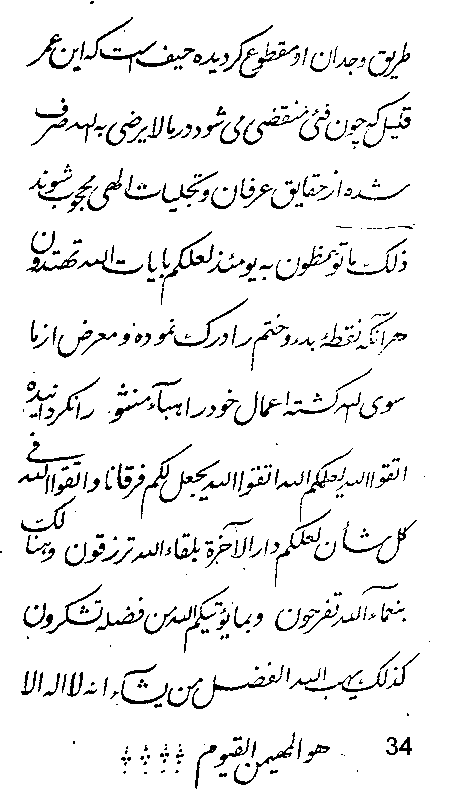 طریق وجدان او مقطوع کردیده حیف است که این عمر
قلیل که چون فئی منقضی می شود در ما لا یرضی به الله صرف
شده از حقایق عرفان و تجلیات الهی محجوب شوند
ذلک ما توعظون به یومئذ لعلکم بایات الله تهتدون
هر آنکه نقطهٔ بدء و ختم را درک نموده و معرض از ما
سوی الله کشته اعمال خود را هبآء منثورا نکردانیده
اتقوا الله یعلمکم الله اتقوا الله یجعل لکم فرقانا و اتقوا الله فی
کل شأن لعلکم دار الآخرة بلقاء الله ترزقون وهنالک
بنعمآء الله تفرحون وبما یؤتیکم الله من فضله تشکرون
کذلک یهب الله الفضل من یشآء انه لا اله الا
هو المهیمن القیوم
34